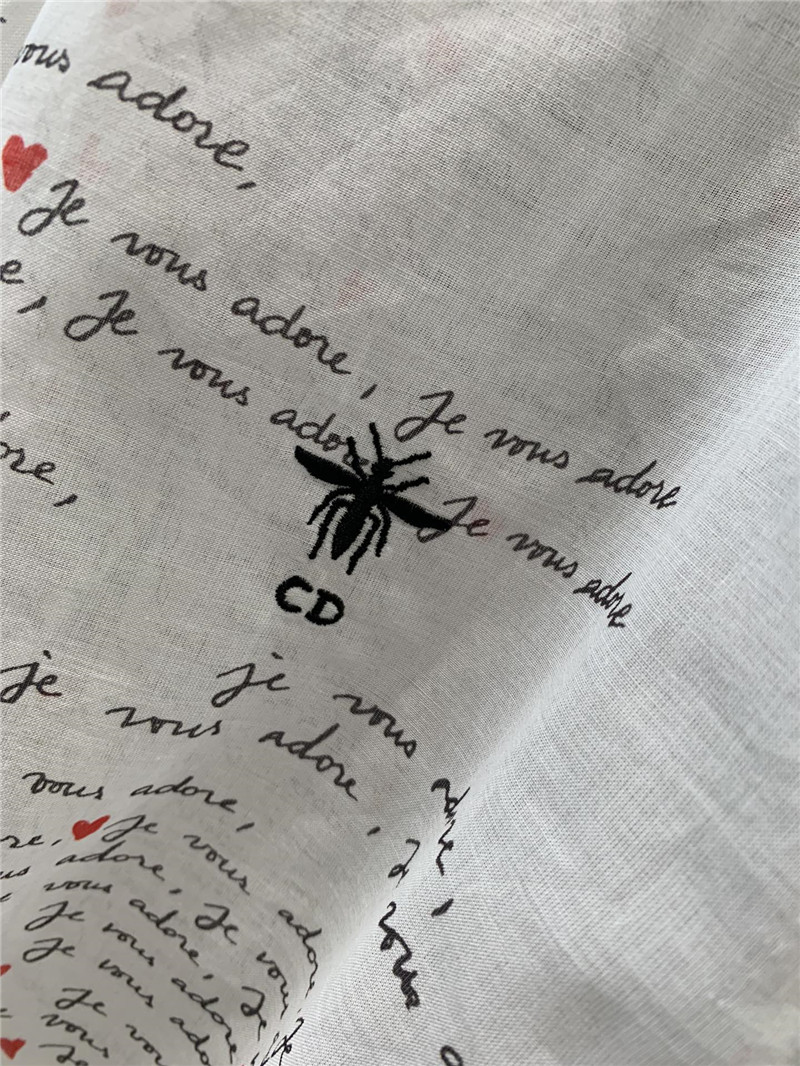 vous adore,
Je vous adore, Je vous adore
e, Je vous adore Je vous adore
ore,
CD
je je vous adre,
vous adore,
vous adore,
re. Je vous adore
adore, Je vous
vous adore, Je
Je vous adore
Je vous ado
Je vou
vous
Je